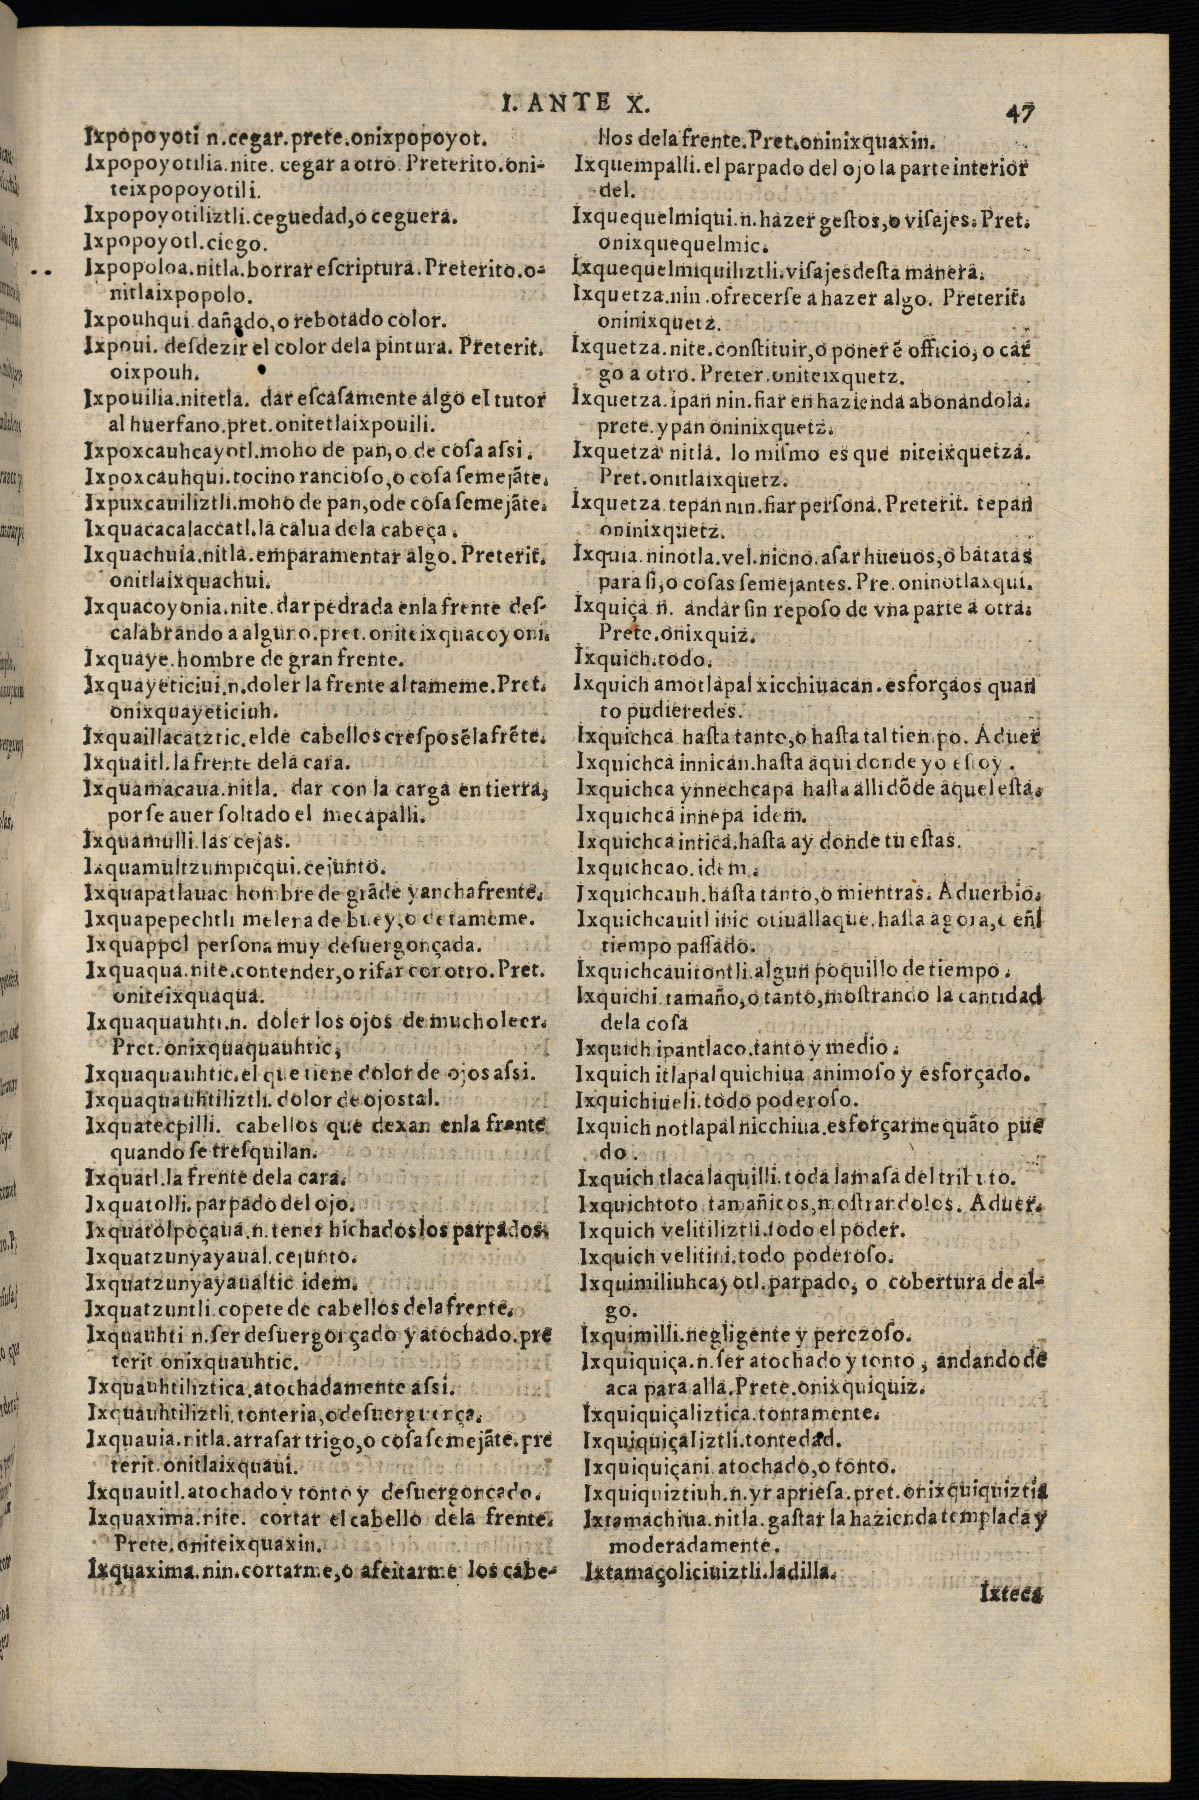 I. ANTE X.
47
Ixpopoyoti n. cegar. prete. onixpopoyot.
Ixpopoyotilia. nite. cegar a otro. Preterito. oni-
teixpopoyotili.
Ixpopoyotiliztli. ceguedad, o ceguera.
Ixpopoyotl. ciego.
Ixpopoloa. nitla. borrar eſcriptura. Preterito. o-
nitlaixpopolo.
Ixpouhqui. dañado, o rebotado color.
Ixpoui. deſdezir el color dela pintura. Preterit.
oixpouh.
Ixpouilia. nitetla. dar eſcaſamente algo el tutor
al huerfano. pret. onitetlaixpouili.
Ixpoxcauhcayotl. moho de pan, o de coſa aſsi.
Ixpoxcauhqui. tocino rancioſo, o coſa ſemejãte.
Ixpuxcauiliztli. moho de pan, o de coſa ſemejãte.
Ixquacacalaccatl. la calua dela cabeça.
Ixquachuia. nitla. emparamentar algo. Preterit.
onitlaixquachui.
Ixquacoyonia. nite. dar pedrada enla frente deſ-
calabrando a alguno. pret. oniteixquacoyoni.
Ixquaye. hombre de gran frente.
Ixquayeticiui. n. doler la frente al tameme. Pret.
onixquayeticiuh.
Ixquaillacatztic. el de cabellos creſpos ẽla frẽte.
Ixquaitl. la frente dela cara.
Ixquamacaua. nitla. dar con la carga en tierra,
por ſe auer ſoltado el mecapalli.
Ixquamulli. las cejas.
Ixquamultzumpicqui. cejunto.
Ixquapatlauac hombre de grãde y ancha frente.
Ixquapepechtli melena de buey, o de tameme.
Ixquappol perſona muy deſuergonçada.
Ixquaqua. nite. contender, o rifar con otro. Pret.
oniteixquaqua.
Ixquaquauhti. n. doler los ojos de mucho leer.
Pret. onixquaquauhtic,
Ixquaquauhtic. el que tiene dolor de ojos aſsi.
Ixquaquauhtiliztli. dolor de ojos tal.
Ixquatecpilli. cabellos que dexan enla frente
quando ſe treſquilan.
Ixquatl. la frente dela cara.
Ixquatolli. parpado del ojo.
Ixquatolpoçaua. n. tener hichados los parpados.
Ixquatzunyayaual. cejunto.
Ixquatzunyayaualtic idem.
Ixquatzuntli. copete de cabellos dela frente.
Ixquauhti n. ſer deſuergonçado y atochado. pre
terit onixquauhtic.
Ixquauhtiliztica. atochadamente aſsi.
Ixquauhtiliztli. tonteria, o deſuerguença.
Ixquauia. nitla. arraſar trigo, o coſa ſemejãte. pre
terit. onitlaixquaui.
Ixquauitl. atochado y tonto y deſuergonçado.
Ixquaxima. nite. cortar el cabello dela frente.
Prete. oniteixquaxin.
Ixquaxima. nin. cortarme, o afeitarme los cabe-
llos dela frente. Pret. oninixquaxin.
Ixquempalli. el parpado del ojo la parte interior
del.
Ixquequelmiqui. n. hazer geſtos, o viſajes. Pret.
onixquequelmic.
Ixquequelmiquiliztli. viſajes deſta manera.
Ixquetza. nin. ofrecerſe a hazer algo. Preterit.
oninixquetz.
Ixquetza. nite. conſtituir, o poner ẽ officio, o car
go a otro. Preter. oniteixquetz.
Ixquetza. ipan nin. fiar en hazienda abonandola.
prete. ypan oninixquetz.
Ixquetza nitla. lo miſmo es que niteixquetza.
Pret. onitlaixquetz.
Ixquetza tepan nin. fiar perſona. Preterit. tepan
oninixquetz.
Ixquia. ninotla. vel. nicno. aſar hueuos, o batatas
para ſi, o coſas ſemejantes. Pre. oninotlaxqui.
Ixquiça n. andar ſin repoſo de vna parte a otra.
Prete. onixquiz.
Ixquich. todo.
Ixquich amotlapal xicchiuacan. esforçaos quan
to pudieredes.
Ixquichca haſta tanto, o haſta tal tiempo. Aduer
Ixquichca innican. haſta aqui donde yo eſtoy.
Ixquichca ynnechcapa haſta alli dõde aquel eſta.
Ixquichca innepa idem.
Ixquichca intica. haſta ay donde tu eſtas.
Ixquichcao. idem.
Ixquichcauh. haſta tanto, o mientras. Aduerbio.
Ixquichcauitl inic otiuallaque. haſta agora, o eñl
tiempo paſſado.
Ixquichcauitontli. algun poquillo de tiempo.
Ixquichi. tamaño, o tanto, moſtrando la cantidad
dela coſa
Ixquich ipantlaco. tanto y medio.
Ixquich itlapal quichiua animoſo y esforçado.
Ixquichiueli. todo poderoſo.
Ixquich notlapal nicchiua. esforçarme quãto pue
do.
Ixquich tlacalaquilli. toda la maſa del tributo.
Ixquichtoto tamañicos, moſtrandolos. Aduer.
Ixquich velitiliztli. todo el poder.
Ixquich velitini. todo poderoſo.
Iximiliuhcayotl. parpado, o cobertura de al-
go.
Ixquimilli. negligente y perezoſo.
Ixquiquiça. n. ſer atochado y tonto, andando de
aca para alla. Prete. onixquiquiz.
Ixquiquiçaliztica. tontamente.
Ixquiquiçaliztli. tontedad.
Ixquiquiçani atochado, o tonto.
Ixquiquiztiuh. n. yr aprieſa. pret. onixquiquiztia
Ixtamachiua. nitla. gaſtar la hazienda templada y
moderadamente.
Ixtamaçoliciuiztli. ladilla.
Ixteca